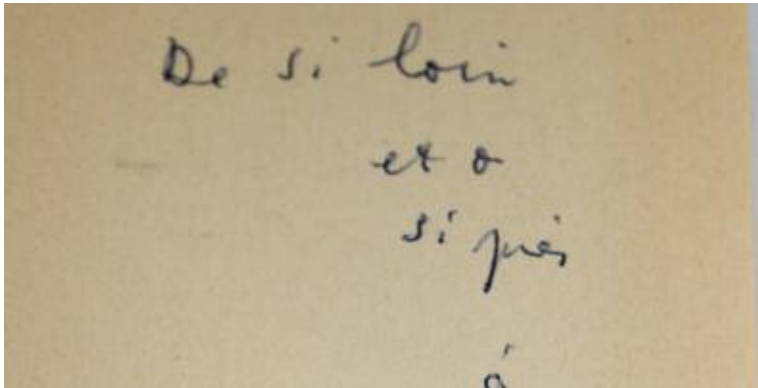 De si loin
et ô
si près
à